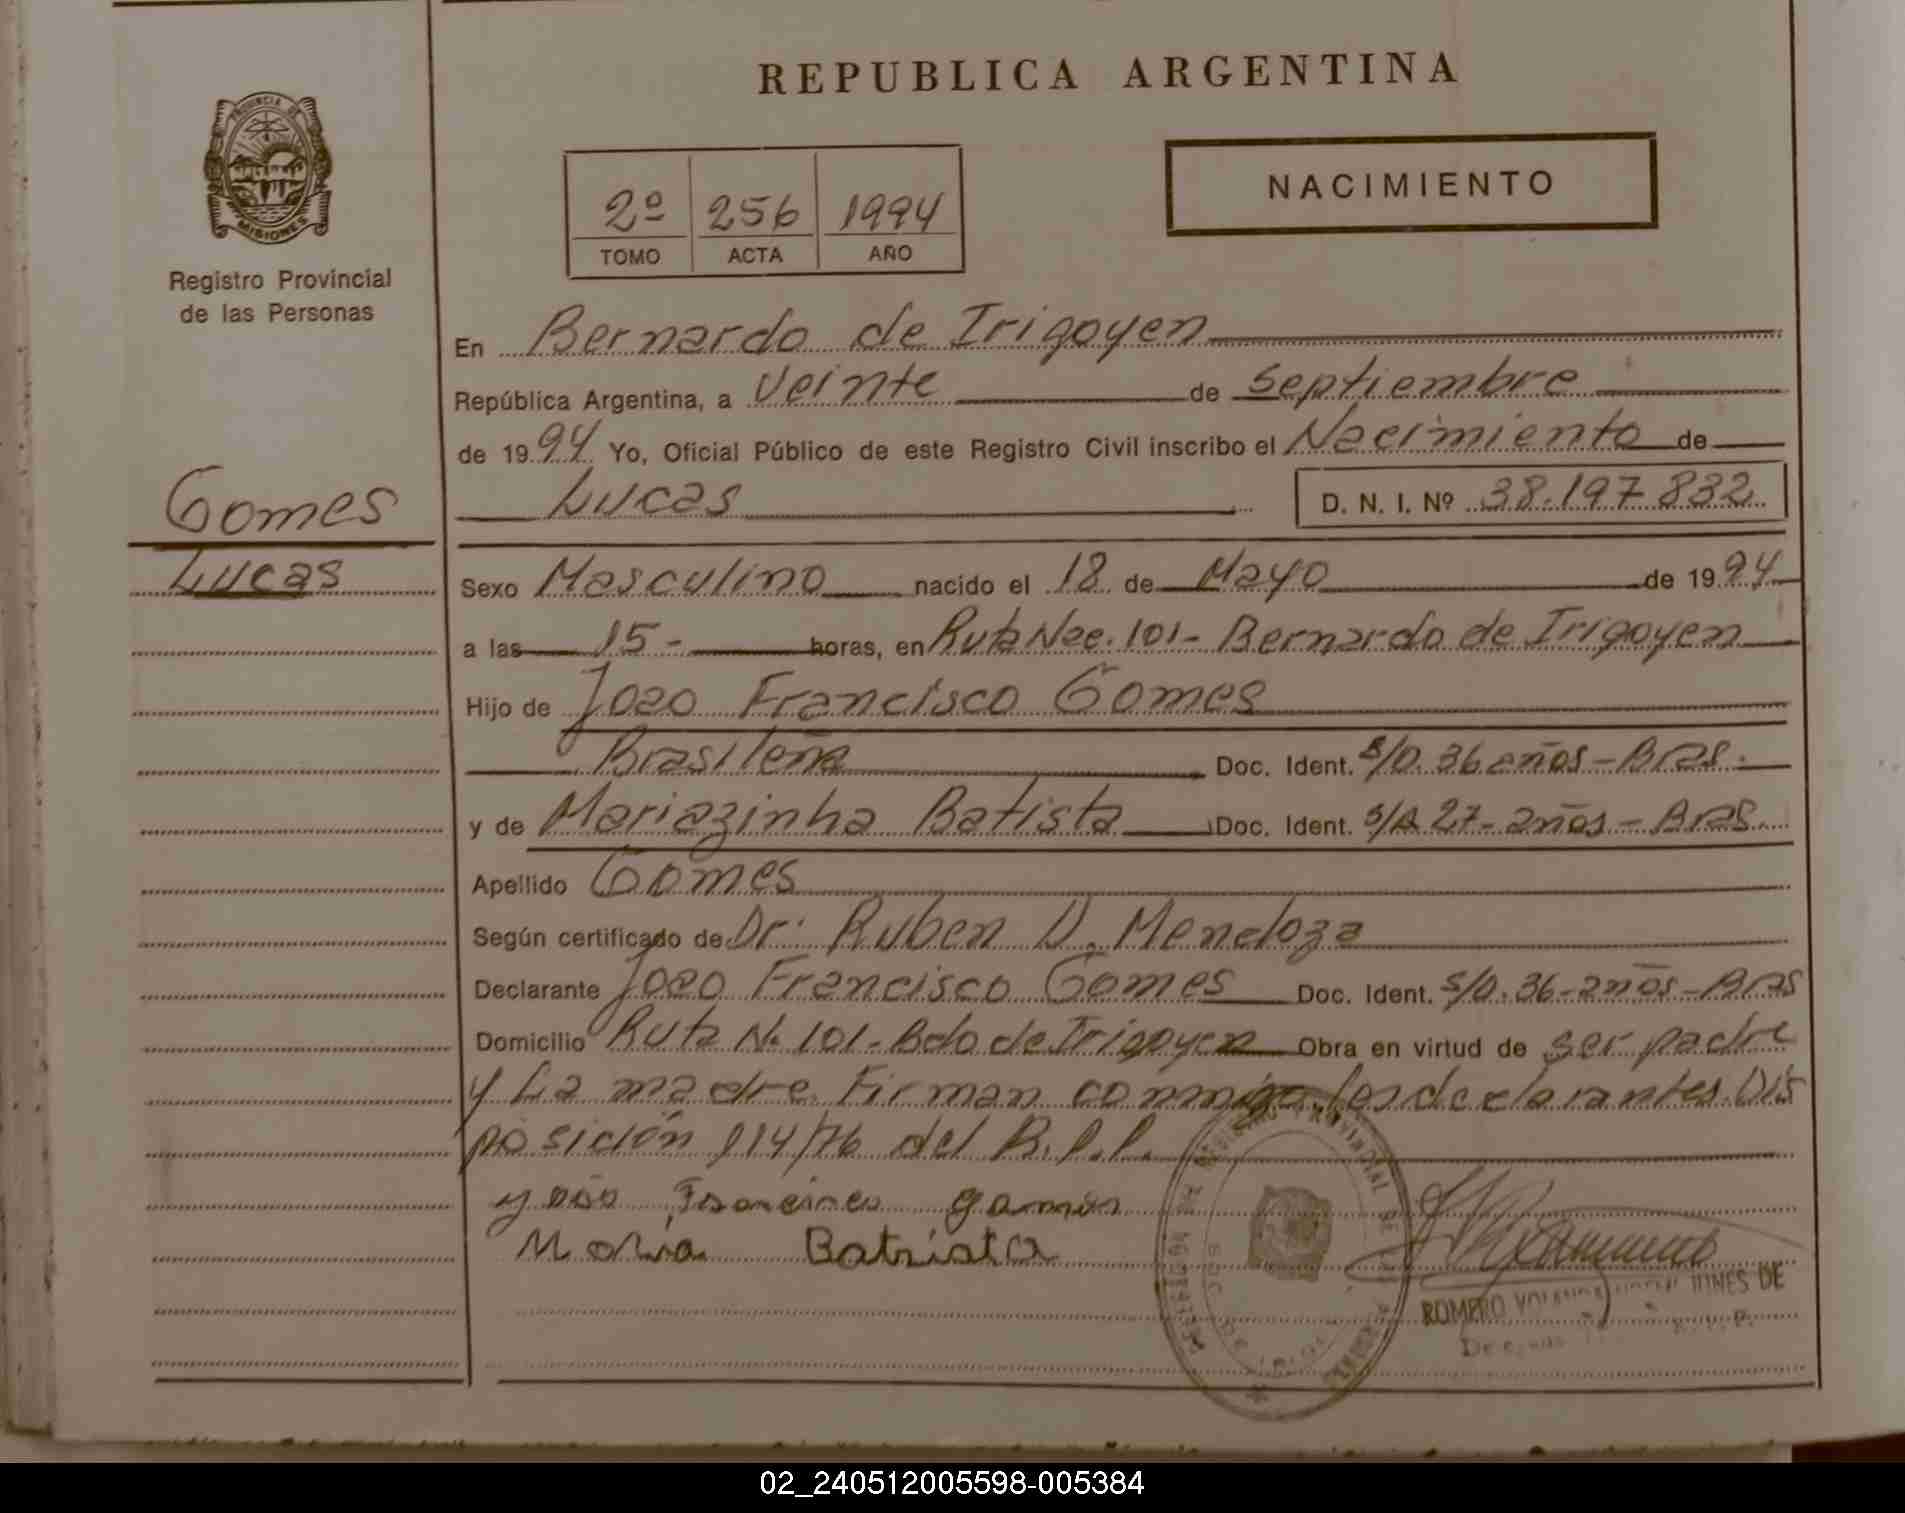 REPUBLICA ARGENTINA
PROVINCIA DE MISIONES
Registro Provincial
de las Personas
2º 256 1994
TOMO ACTA AÑO
NACIMIENTO
En Bernardo de Irigoyen
República Argentina, a Veinte de Septiembre
de 1994 Yo, Oficial Público de este Registro Civil inscribo el Nacimiento de
Lucas D. N. I. Nº 38.197.832
Gomes
Lucas
Sexo Masculino nacido el 18 de Mayo de 1994
a las 15- horas, en Ruta Nac. 101- Bernardo de Irigoyen
Hijo de Joao Francisco Gomes
Brasileña Doc. Ident. S/D. 36 años - Bras.
y de Mariazinha Batista Doc. Ident. S/D 27- años - Bras.
Apellido Gomes
Según certificado de Dr. Ruben D. Mendoza
Declarante Joao Francisco Gomes Doc. Ident. S/D. 36- años - Bras
Domicilio Ruta N. 101- Bdo de Irigoyen Obra en virtud de ser padre
y La madre. Firman conmigo los declarantes. Dis
posición 114/76 del R.P.P.
Maria Batrista
ROMERO YOLANDA DE
02_240512005598-005384